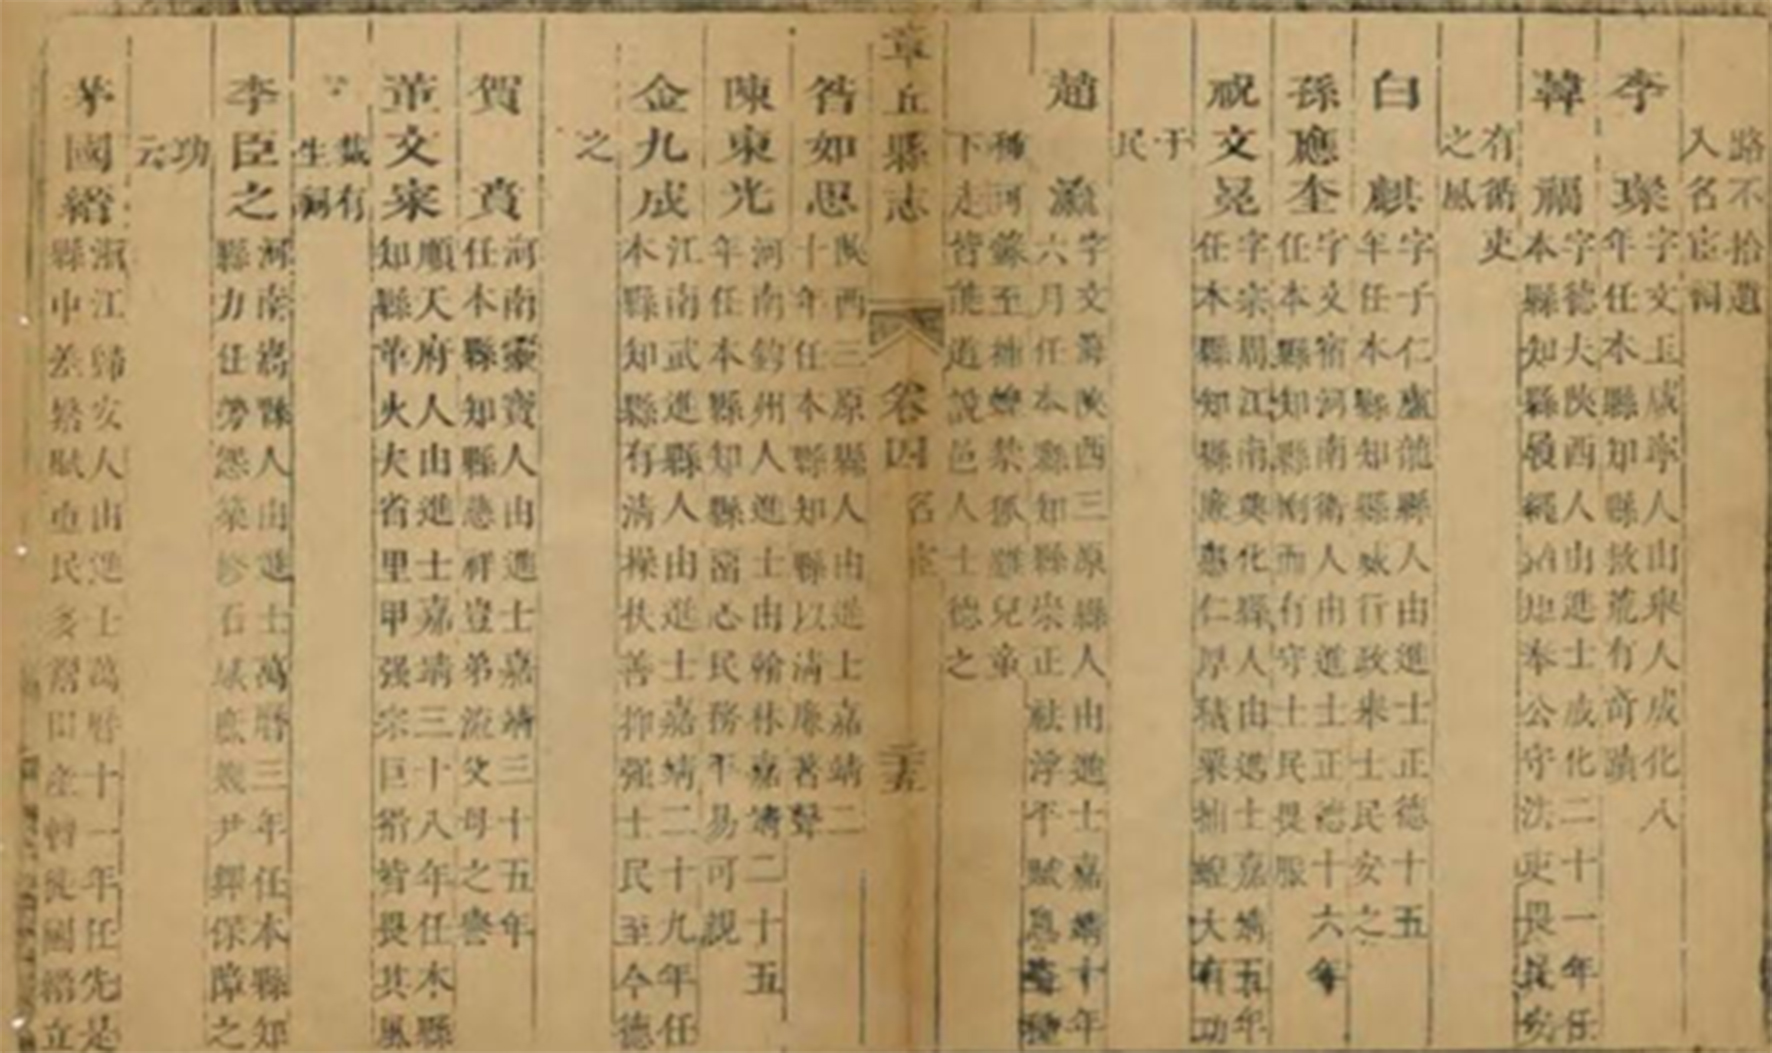 路不拾遺
入名宦祠
李璨 字文玉咸寧人由舉人成化八
年任本縣知縣救荒有奇蹟
韓福 字德夫陝西人由進士成化二十一年任
本縣知縣展繩治地奉公守法吏畏民安
有循吏
之風
白麒 字子仁盧龍縣人由進士正德十五
年任本縣知縣威行政來士民安之
孫應奎 字文宿河南衛人由進士正德十六年
任本縣知縣剛而有守士民畏服
祝文冕 字宗周江南奉化縣人由進士嘉靖五年
任本縣知縣廉惠仁厚積粟捕蝗大有功
于
民
趙瀛 字文海陝西三原縣人由進士嘉靖十年
六月任本縣知縣崇正祛浮平賦息
種河蘇至捕蝗禁狐兒童
下走皆能道說邑人士德之
章丘縣志
卷四
名宦
三五
昝如思 陝西三原縣人由進士嘉靖二
十年任本縣知縣以清廉著聲
陳東光 河南鈞州人進士由翰林嘉靖二十五
年任本縣知縣留心民務平易可親
金九成 江南武進縣人由進士嘉靖二十九年任
本縣知縣有清操扶善抑强士民至今德
之
賀賁 河南靈寶人由進士嘉靖三十五年
任本縣知縣愷祥豈弟流父母之譽
董文寀 順天府人由進士嘉靖三十八年任本縣
知縣革火夫省里甲强宗巨猾皆畏其風
載有
生祠
李臣之 河南人由進士萬曆三年任本縣知
縣力任勞怨築修石城底幾尹鐸保障之
功
云
茅國縉 浙江歸安人由進士萬曆十一年任先是
縣中差繇賦重民多鬻田産轉徙國縉立